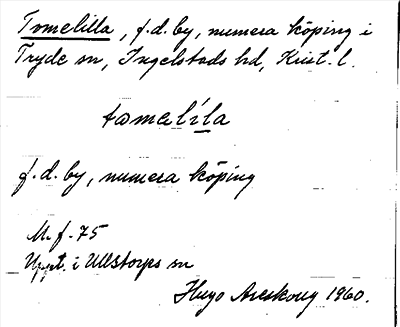 Tomelilla, f.d. by, numera köping i
Tryde sn, Ingelstads hd, Krist. l.
tomelíla
f.d. by, numera köping
M. f. -75
Uppt. i Ullstorps sn
Hugo Areskoug 1960.